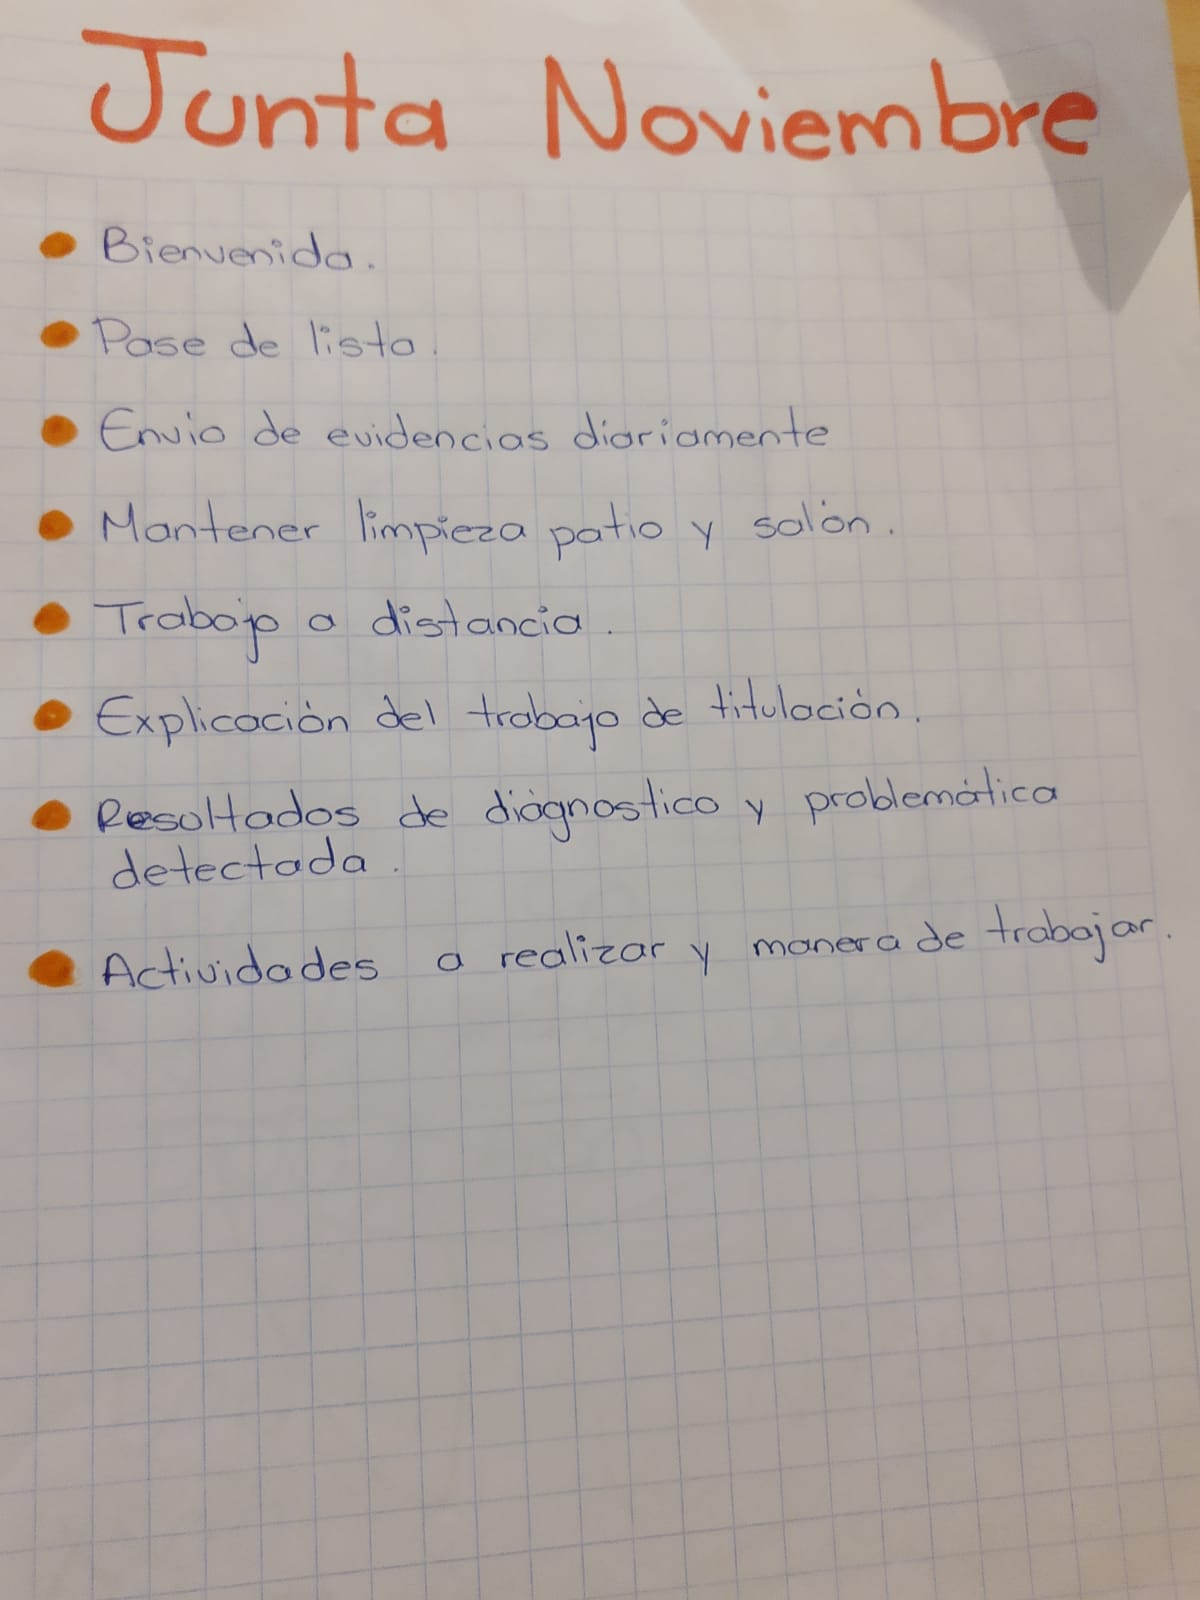 Junta Noviembre
Bienvenida.
Pase de lista.
Envio de evidencias diariamente
Mantener limpieza patio y salón.
Trabajo a distancia.
Explicación del trabajo de titulación.
Resultados de diágnostico y problemática
detectada.
Actividades a realizar y manera de trabajar.